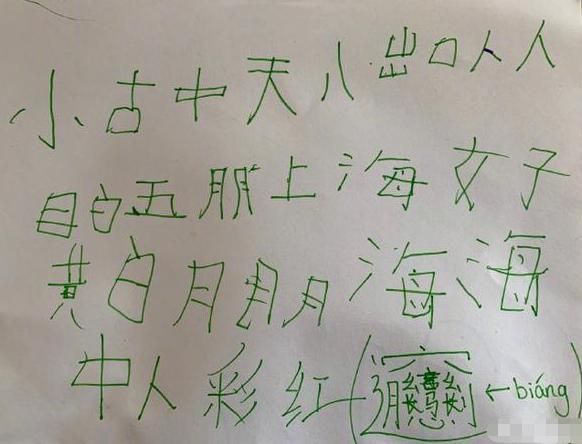 小古中天八出口人人
目白五朋上海女子
黄白月月月海海
中人彩红(𰻞←biáng)